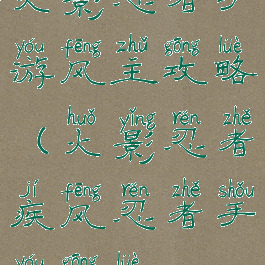 火影忍者手
yóu fēng zhǔ gōng lüè
游风主攻略
huǒ yǐng rěn zhě
（火影忍者
jí fēng rěn zhě shǒu
疾风忍者手
yóu gōng lüè